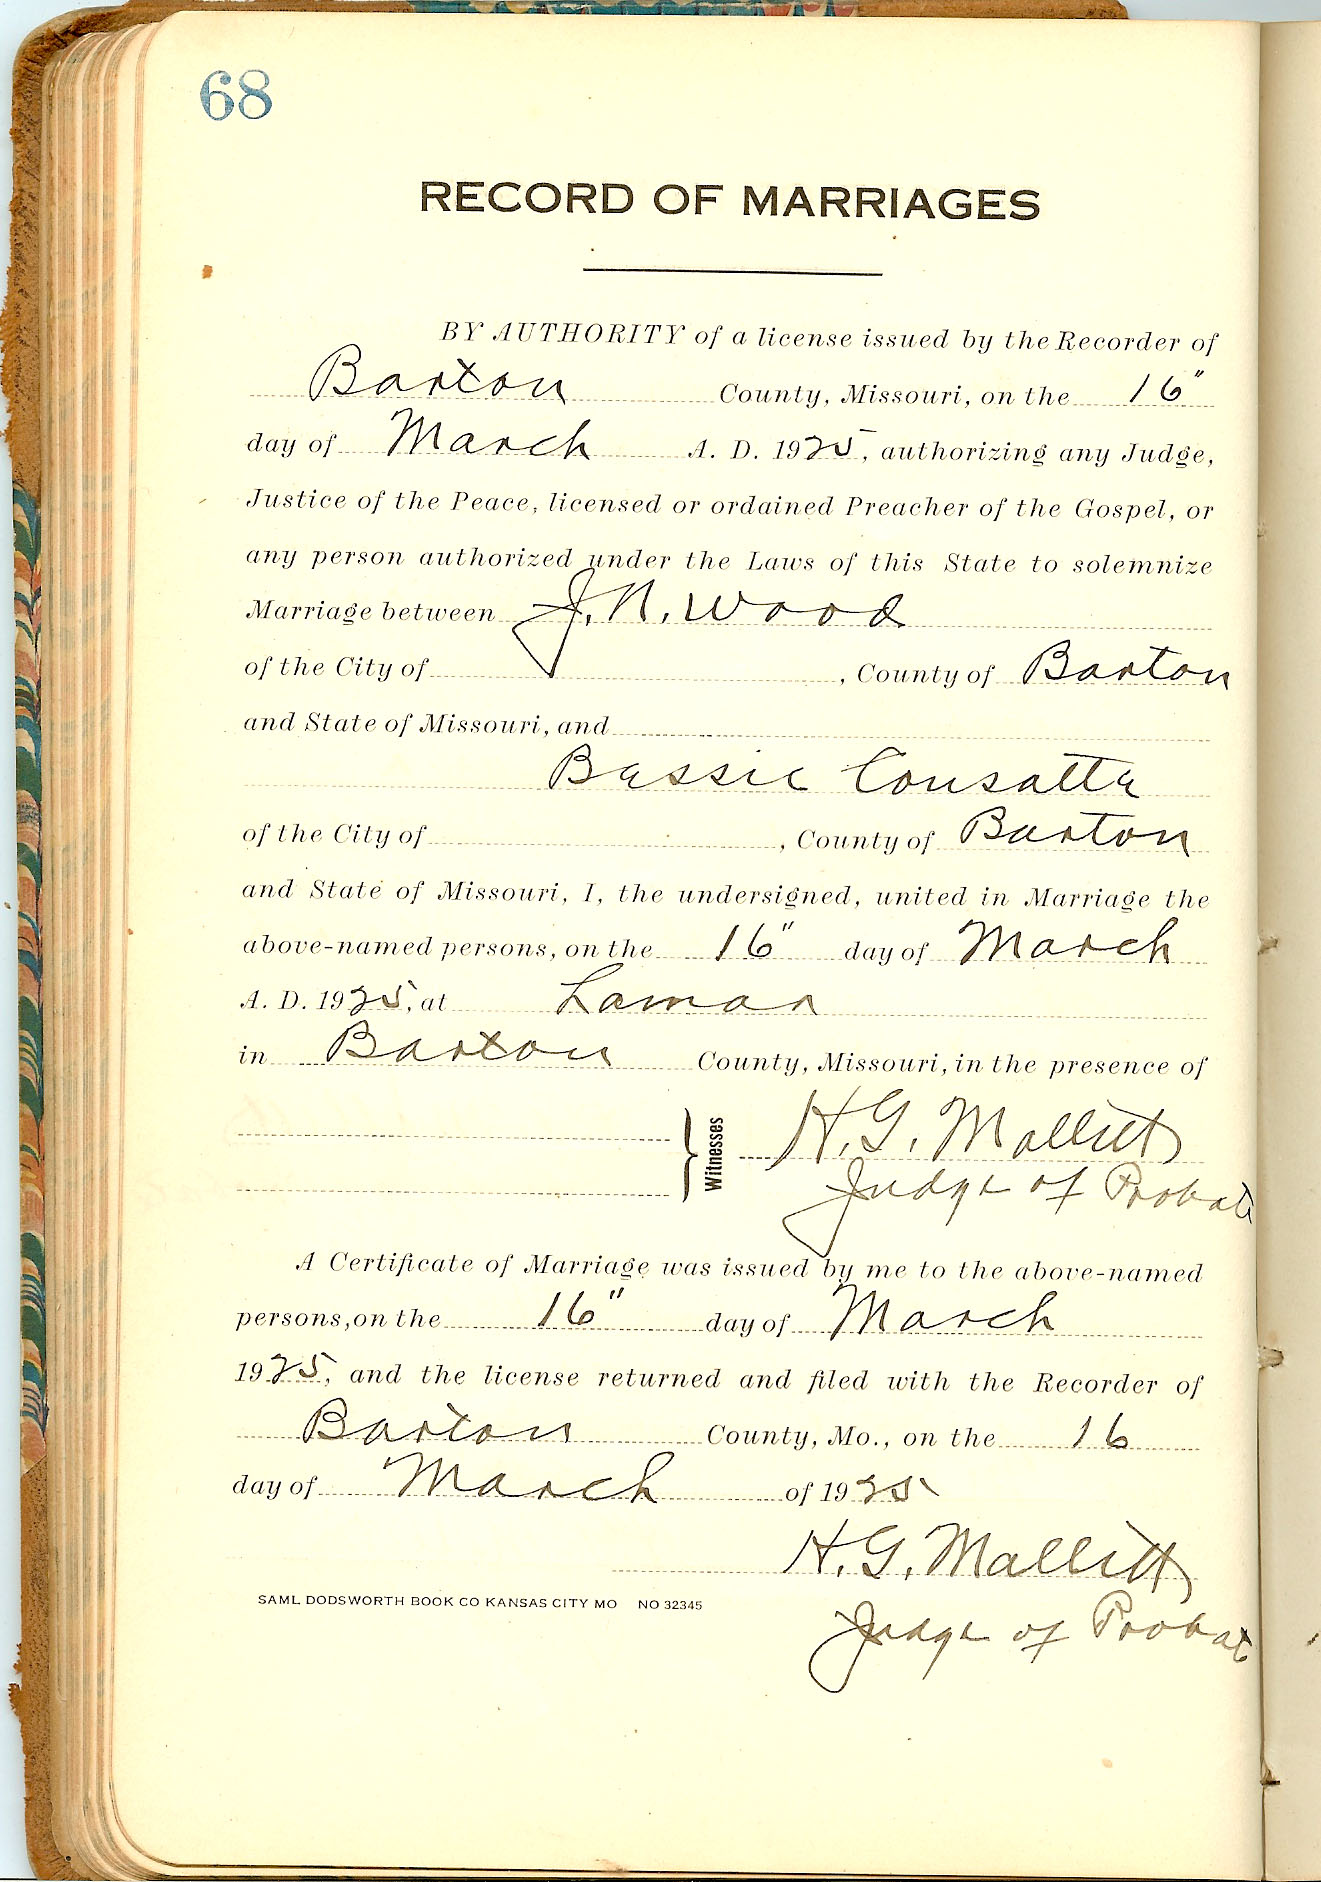 68
RECORD OF MARRIAGES
BY AUTHORITY of a license issued by the Recorder of
Barton County, Missouri, on the 16"
day of March A. D. 1925, authorizing any Judge,
Justice of the Peace, licensed or ordained Preacher of the Gospel, or
any person authorized under the Laws of this State to solemnize
Marriage between J. N. Wood
of the City of , County of Barton
and State of Missouri, and
Bessie Consatte
of the City of , County of Barton
and State of Missouri, I, the undersigned, united in Marriage the
above-named persons, on the 16" day of March
A. D. 1925, at Lamar
in Barton County, Missouri, in the presence of
Witnesses H. G. Mallitt
Judge of Probate
A Certificate of Marriage was issued by me to the above-named
persons, on the 16" day of March
1925, and the license returned and filed with the Recorder of
Barton County, Mo., on the 16
day of March of 1925
H. G. Mallitt
SAML DODSWORTH BOOK CO KANSAS CITY MO NO 32345
Judge of Probate